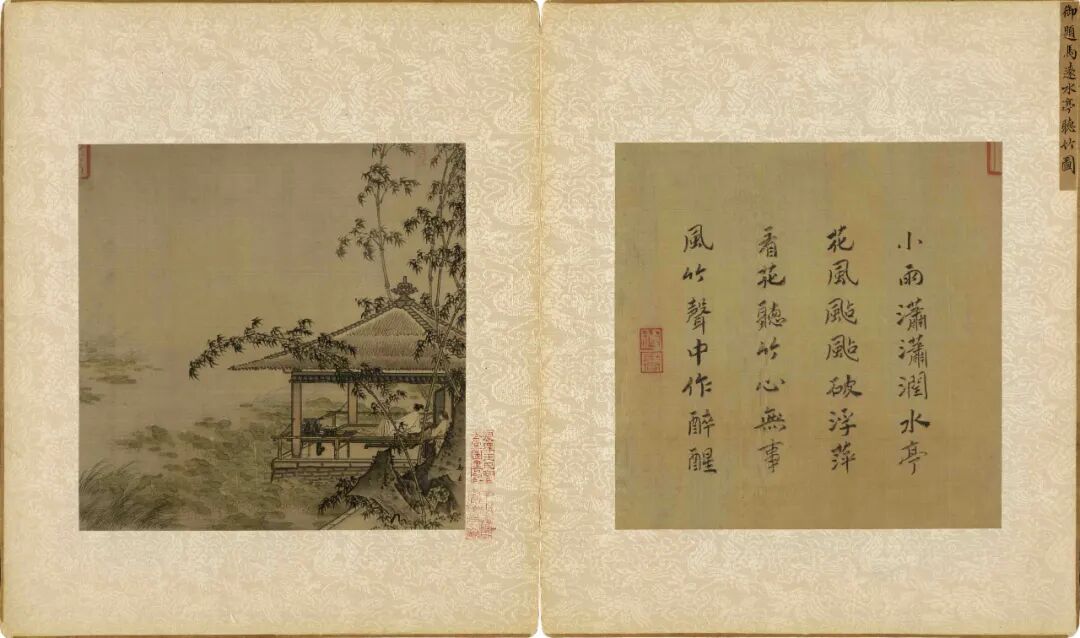 御題馬遠水亭聽竹圖
小雨瀟瀟潤水亭
花風颭颭破浮萍
看花聽竹心無事
風竹聲中作醉醒